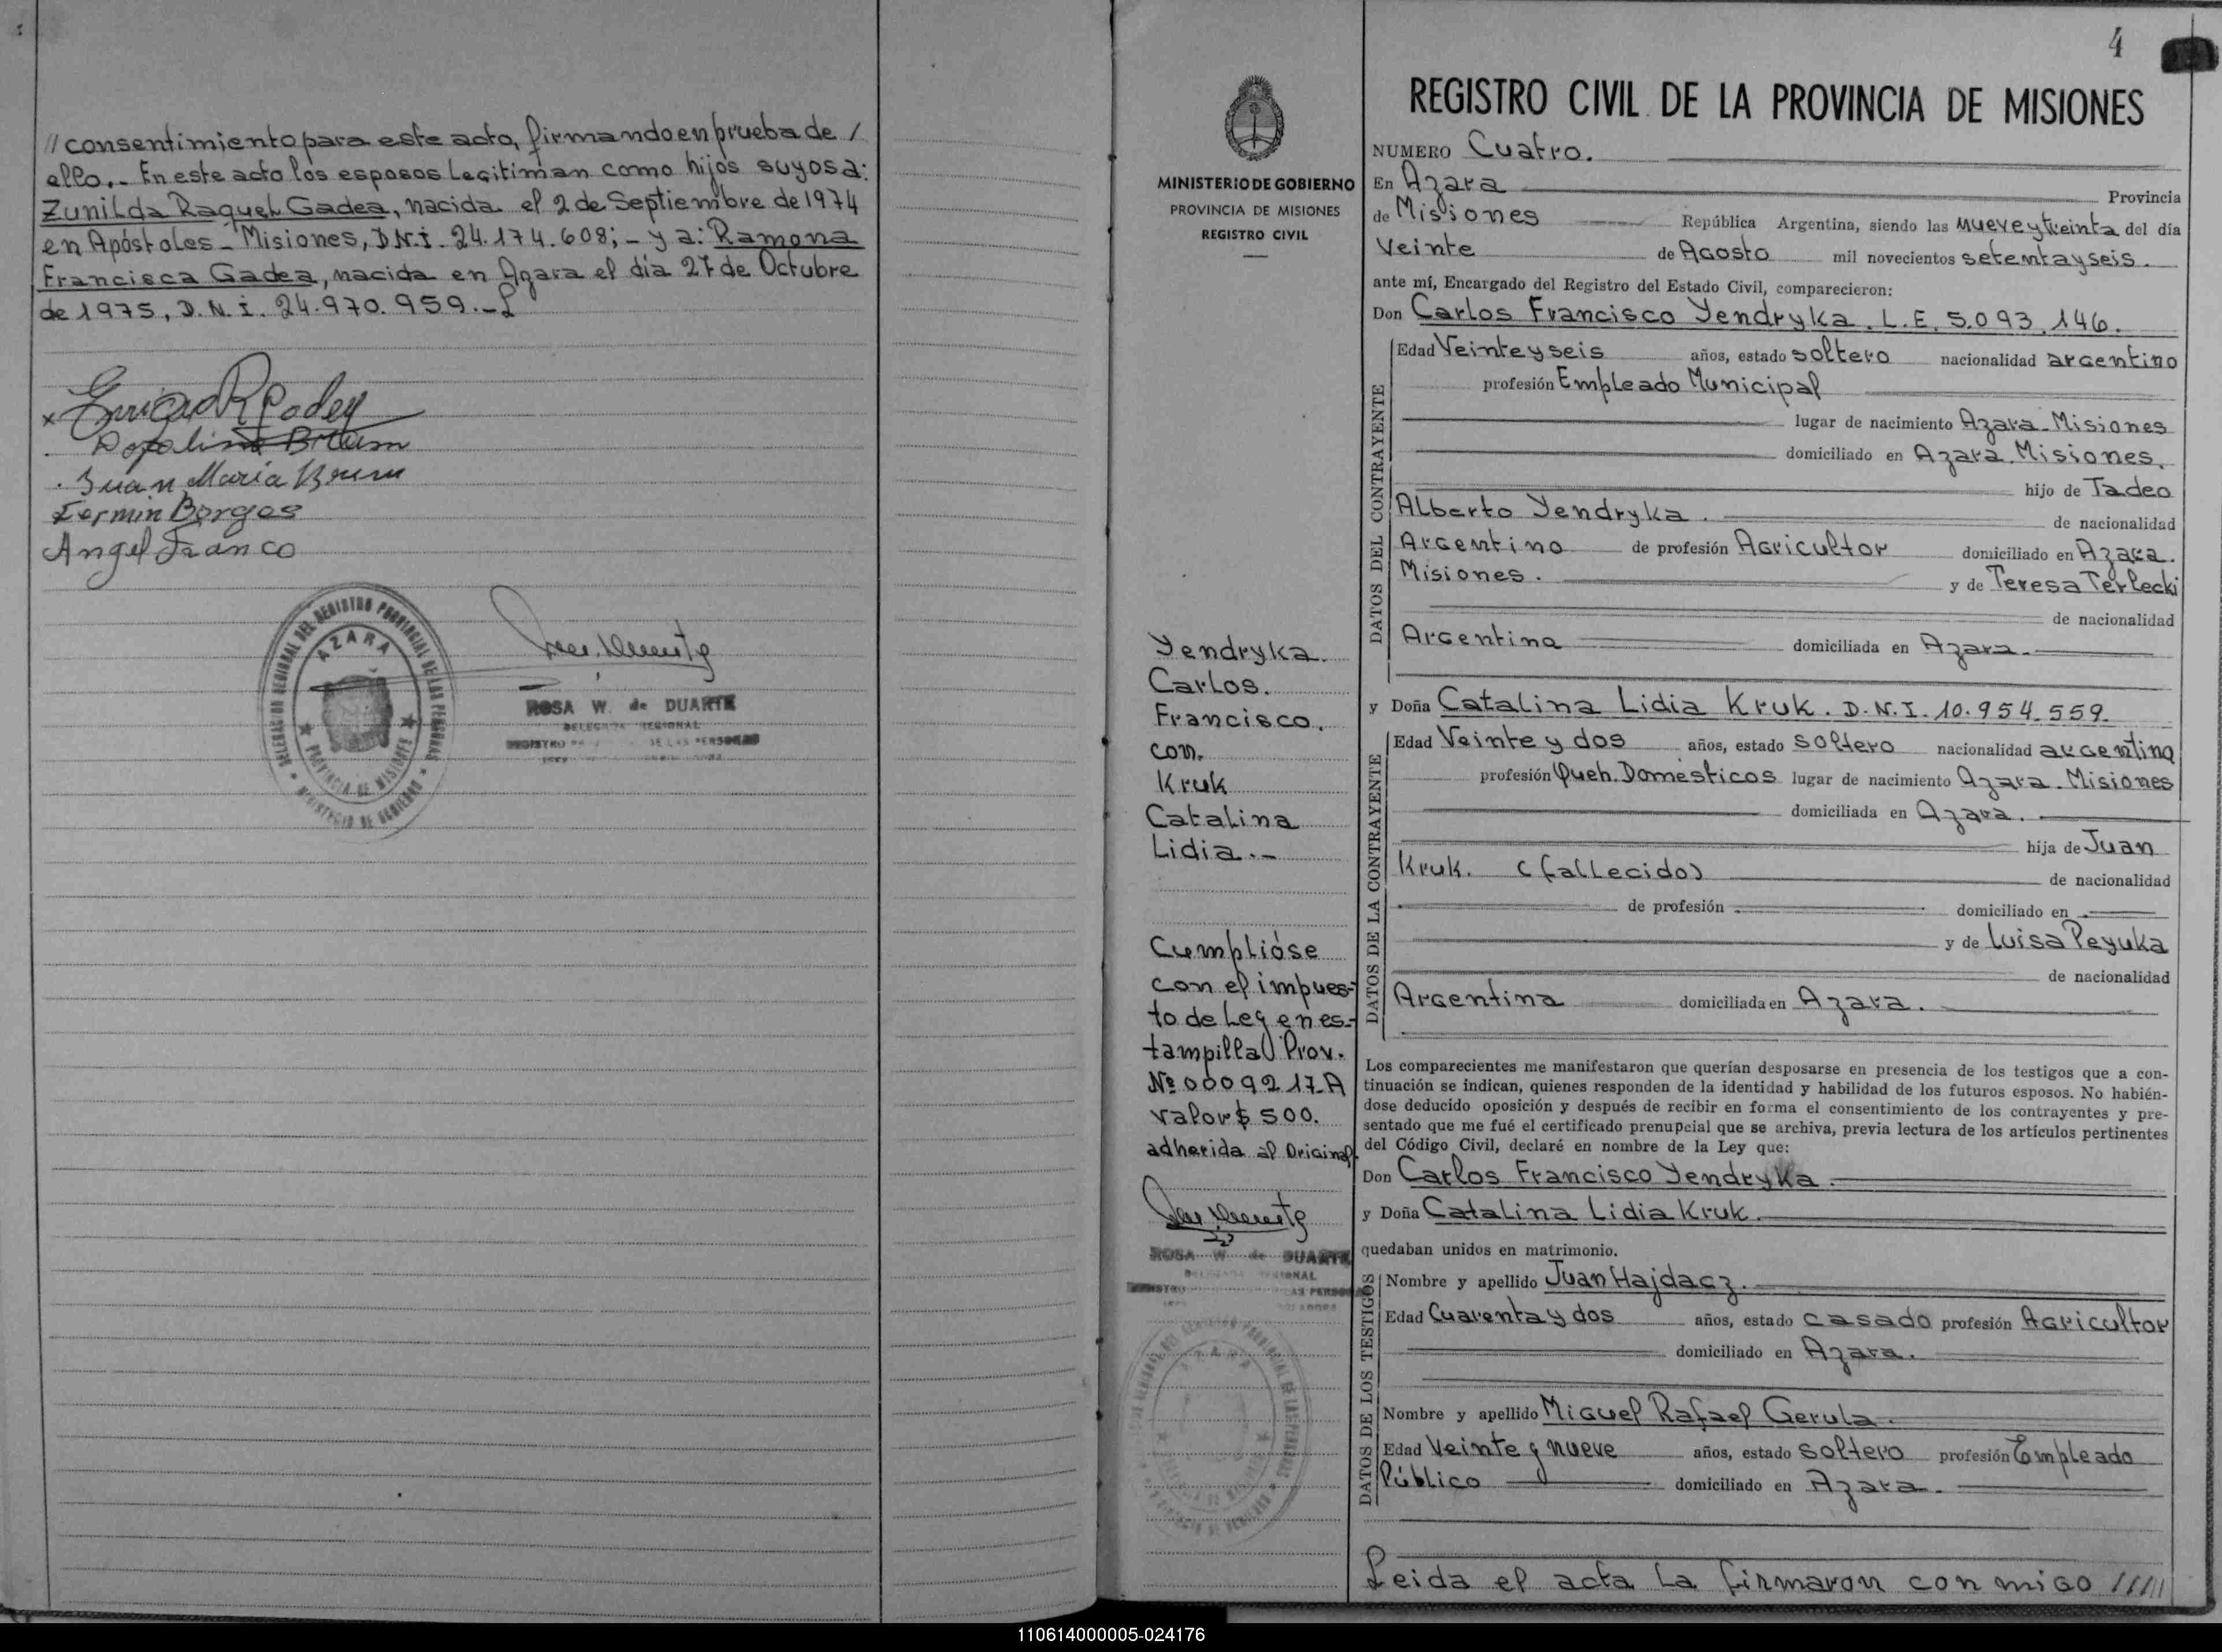 // consentimiento para este acto, firmando en prueba de /
ello.- En este acto los esposos Legitiman como hijos suyos a:
Zunilda Raquel Gadea, nacida el 2 de Septiembre de 1974
en Apóstoles - Misiones, D.N.I. 24.174.608; - y a: Ramona
Francisca Gadea, nacida en Azara el día 27 de Octubre
de 1975, D.N.I. 24.970.959.-
Juan María Brum
Fermin Borges
Angel Franco
DELEGACION REGIONAL DEL REGISTRO PROVINCIAL DE LAS PERSONAS
AZARA
PROVINCIA DE MISIONES
MINISTERIO DE GOBIERNO
ROSA W. de DUARTE
DELEGADA REGIONAL
REGISTRO DE LAS PERSONAS
4
MINISTERIO DE GOBIERNO
PROVINCIA DE MISIONES
REGISTRO CIVIL
Yendryka.
Carlos.
Francisco.
con.
Kruk
Catalina
Lidia.-
Cumplióse
con el impues-
to de Ley en es-
tampilla Prov.
Nº 0009217-A
valor $ 500.
adherida al Original.
ROSA W. de DUARTE
REGISTRO CIVIL DE LA PROVINCIA DE MISIONES
NUMERO Cuatro.
En Azara Provincia
de Misiones República Argentina, siendo las nueve y treinta del día
Veinte de Agosto mil novecientos setenta y seis.
ante mí, Encargado del Registro del Estado Civil, comparecieron:
Don Carlos Francisco Yendryka. L.E. 5.093.146.
DATOS DEL CONTRAYENTE
Edad Veinte y seis años, estado soltero nacionalidad argentino
profesión Empleado Municipal
lugar de nacimiento Azara - Misiones
domiciliado en Azara. Misiones.
hijo de Tadeo
Alberto Yendryka. de nacionalidad
Argentino de profesión Agricultor domiciliado en Azara.
Misiones. y de Teresa Terlecki
de nacionalidad
Argentina domiciliada en Azara.
y Doña Catalina Lidia Kruk. D.N.I. 10.954.559.
DATOS DE LA CONTRAYENTE
Edad Veinte y dos años, estado soltero nacionalidad argentina
profesión Queh. Domésticos lugar de nacimiento Azara. Misiones
domiciliada en Azara.
hija de Juan
Kruk. (fallecido) de nacionalidad
de profesión domiciliado en
y de Luisa Peyuka
de nacionalidad
Argentina domiciliada en Azara.
Los comparecientes me manifestaron que querían desposarse en presencia de los testigos que a con-
tinuación se indican, quienes responden de la identidad y habilidad de los futuros esposos. No habién-
dose deducido oposición y después de recibir en forma el consentimiento de los contrayentes y pre-
sentado que me fué el certificado prenupcial que se archiva, previa lectura de los artículos pertinentes
del Código Civil, declaré en nombre de la Ley que:
Don Carlos Francisco Yendryka.
y Doña Catalina Lidia Kruk.
quedaban unidos en matrimonio.
DATOS DE LOS TESTIGOS
Nombre y apellido Juan Hajdacz.
Edad Cuarenta y dos años, estado casado profesión Agricultor
domiciliado en Azara.
Nombre y apellido Miguel Rafael Gerula.
Edad Veinte y nueve años, estado soltero profesión Empleado
Público domiciliado en Azara.
Leida el acta la firmaron conmigo /////
110614000005-024176